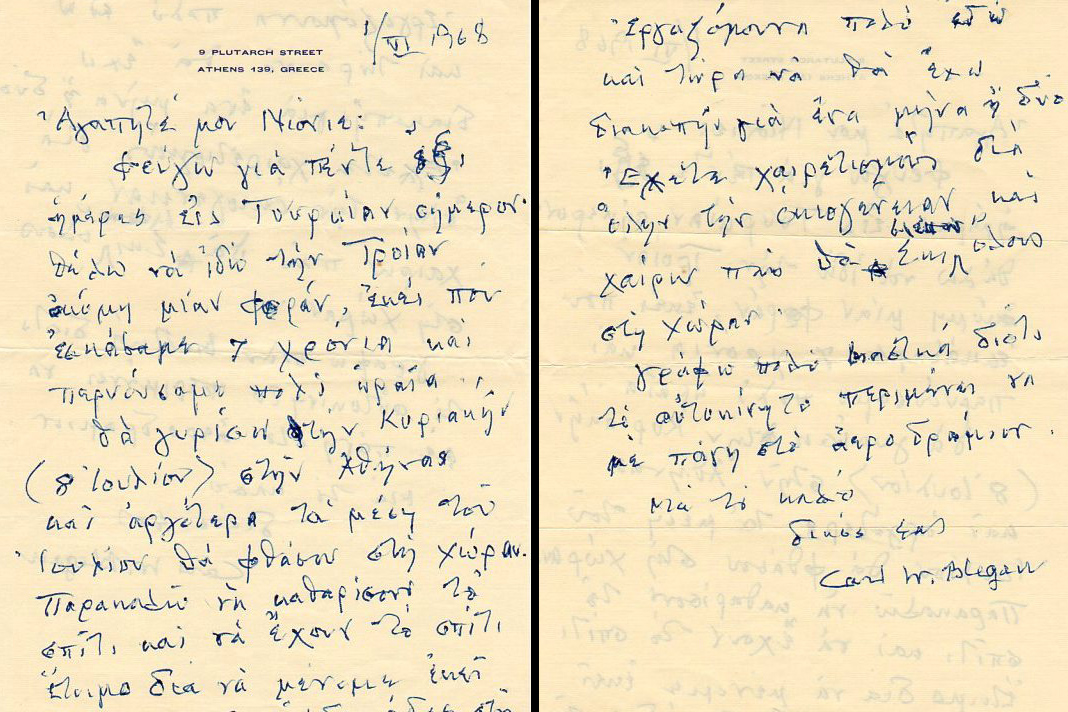 9 PLUTARCH STREET
ATHENS 139, GREECE
1/VI 1968
Ἀγαπητέ μου Νιόνιε:
φεύγω γιὰ πέντε ἕξ
ἡμέρας εἰς Τουρκίαν σήμερον.
θέλω νὰ ἰδῶ τὴν Τροίαν
ἀκόμη μίαν φοράν, ἐκεῖ που
ἐσκάψαμε 7 χρόνια καὶ
περνούσαμε πολὺ ὡραῖα.
θὰ γυρίσω στὴν Κυριακὴν
(8 Ἰουλίου) στὴν Ἀθήνας
καὶ ἀργότερα τὰ μέση τοῦ
Ἰουλίου θὰ φθάσου στὴ χώραν.
Παρακαλῶ νὰ καθαρίσουν τὸ
σπίτι καὶ νὰ ἔχουν τὸ σπίτι
ἕτοιμο διὰ νὰ μένομε ἐκεῖ
Ἐργαζόμουνα πολὺ ἐδῶ
καὶ τώρα νὰ θὰ ἔχω
διακοπὴν γιὰ ἕνα μῆνα ἢ δύο
Ἔχετε χαιρετισμοὺς διὰ
ὅλην τὴν οἰκογένειαν καὶ
χαίρω ποὺ θὰ ὅλους
στὴ χώραν.
γράφω πολὺ βιαστικά διότι
τὸ αὐτοκίνητο περιμένει νὰ
μὲ πάγη στὸ ἀεροδρόμιον.
Με τὸ καλὸ
δικός σας
Carl W. Blegen